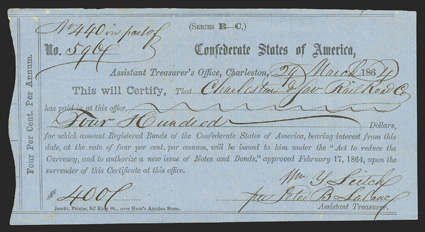 No 440 in part of
(SERIES B—C.)
No. 596
Confederate States of America,
Assistant Treasurer's Office, Charleston, 29 March 1864
This will Certify, That Charleston & Sav Rail Road Co
has paid in at this office,
Four Hundred Dollars,
for which amount Registered Bonds of the Confederate States of America, bearing interest from this
date, at the rate of four per cent. per annum, will be issued to him under the "Act to reduce the
Currency, and to authorize a new issue of Notes and Bonds," approved February 17, 1864, upon the
surrender of this Certificate at this office.
Wm Y Leitch
$ 400
per B
Assistant Treasurer.
Printer, King St., over
Four Per Cent. Per Annum.